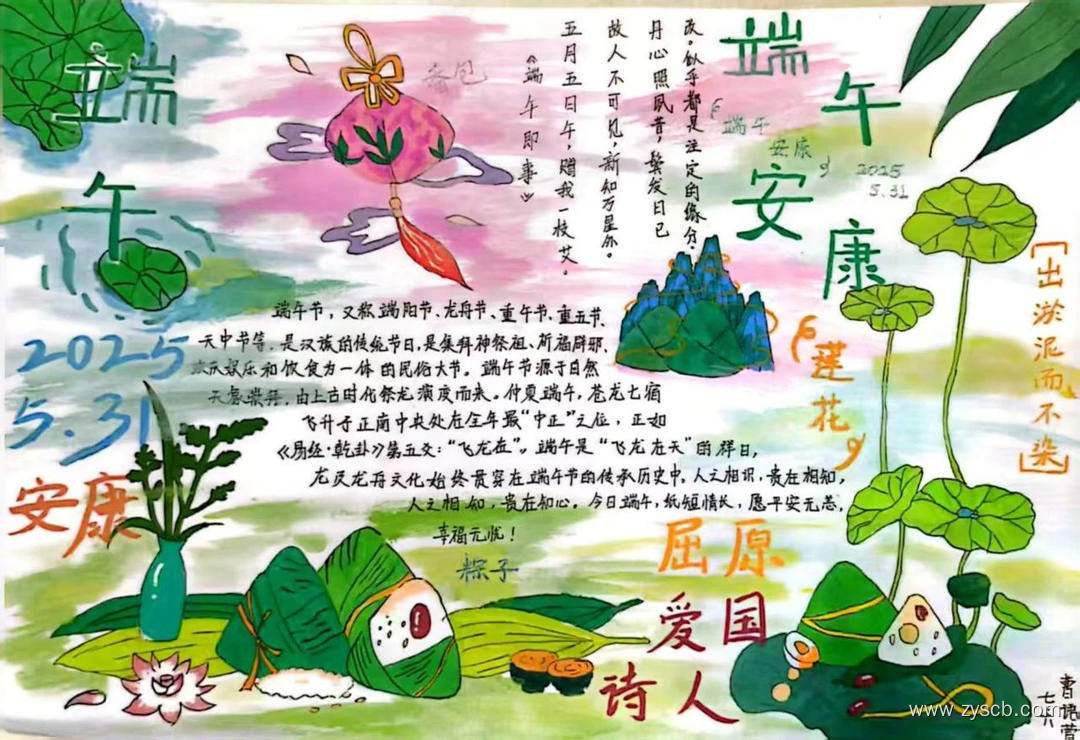 端午
2025
5.31
安康
香包
改。似乎都是注定的缘分。
丹心照夙昔，鬓发日已
故人不可见，新知万里外。
五月五日午，赠我一枝艾。
《端午即事》
端午
安康
『端午
安康』
2025
5.31
「出淤泥而不染」
『莲花』
端午节，又称端阳节、龙舟节、重午节、重五节、
天中节等，是汉族的传统节日，是集拜神祭祖、祈福辟邪、
欢庆娱乐和饮食为一体的民俗大节。端午节源于自然
天象崇拜，由上古时代祭龙演变而来。仲夏端午，苍龙七宿
飞升于正南中央处在全年最“中正”之位，正如
《易经·乾卦》第五爻：“飞龙在”。端午是“飞龙在天”的祥日，
龙及龙舟文化始终贯穿在端午节的传承历史中。人之相识，贵在相知，
人之相知，贵在知心。今日端午，纸短情长，愿平安无恙，
幸福无忧！
粽子
屈原
爱国
诗人
七八
www.zyscb.com